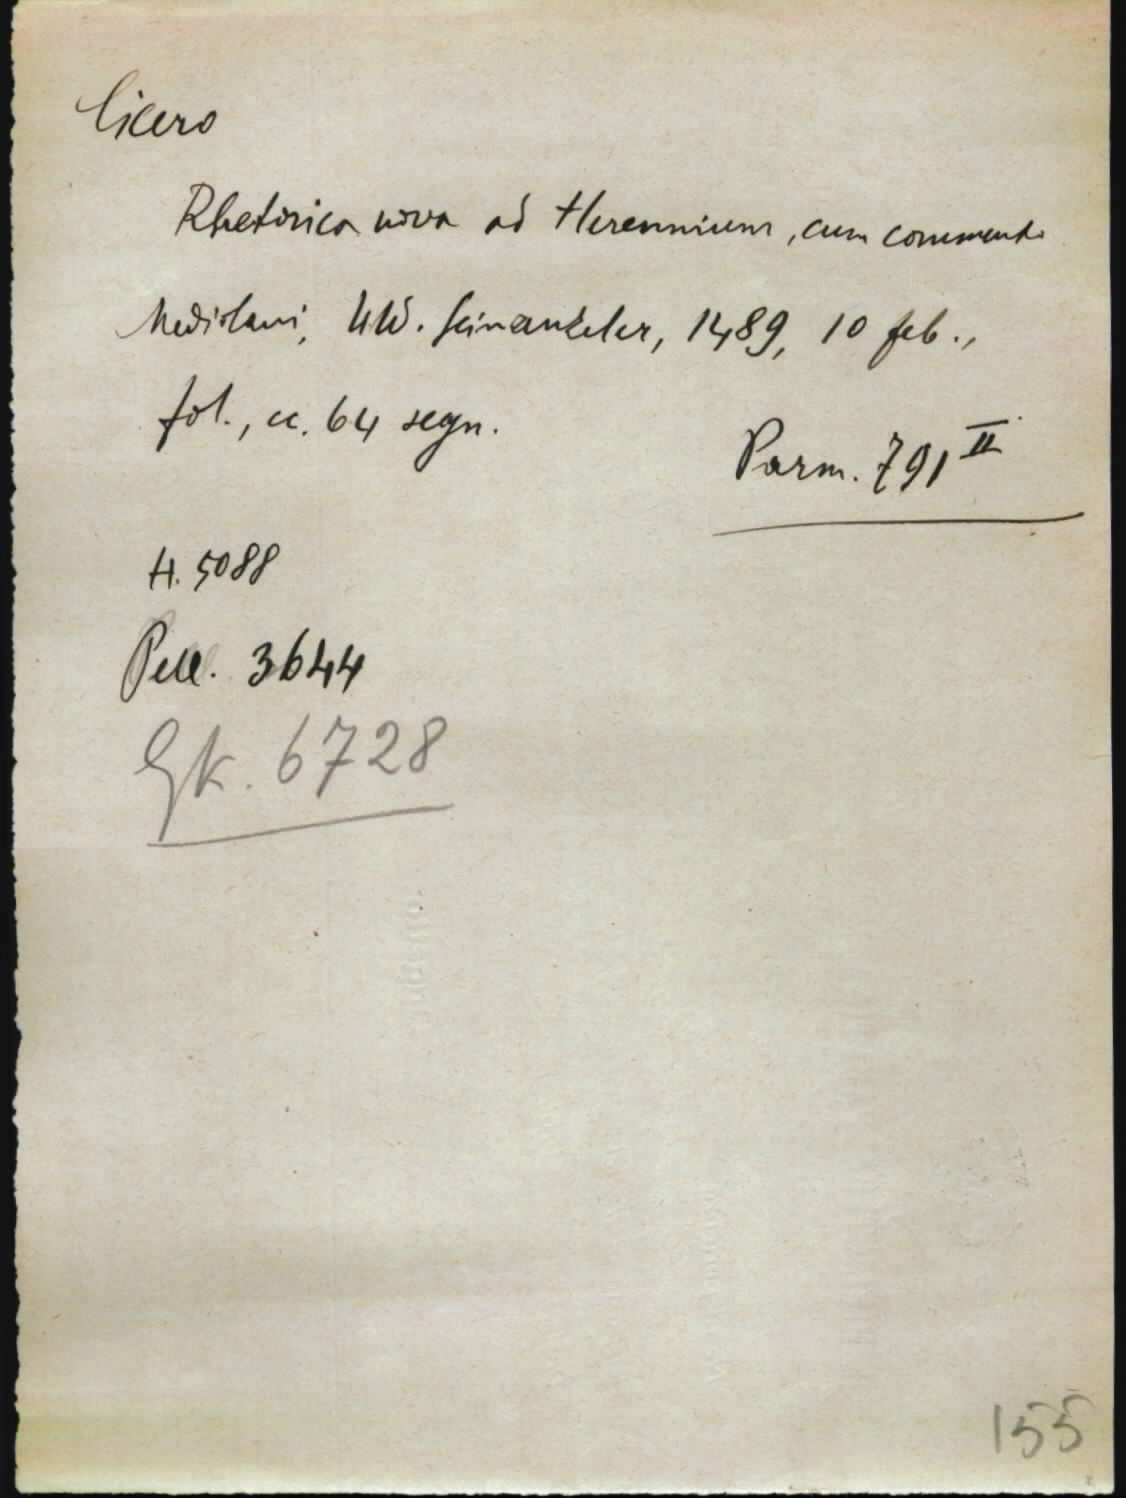 Cicero
Rhetorica nova ad Herennium, cum commento
Mediolani, Uld. Scinzenzeler, 1489, 10 feb.,
fol., cc. 64 segn.
Parm. 791 II
H. 5088
Pell. 3644
Gk. 6728
155